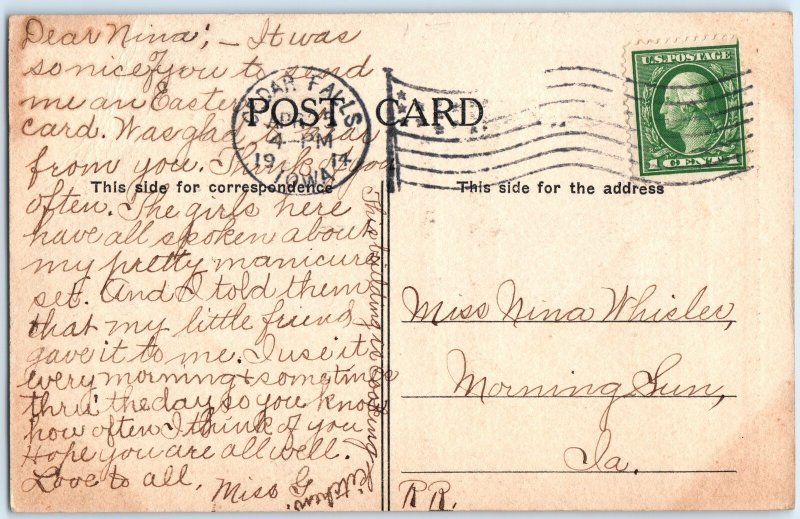 Dear Nina; — It was
so nice of you to send
me an Easter
card. Was glad to hear
from you. Think of you
often. The girls here
have all spoken about
my pretty manicure
set. And I told them
that my little friend
gave it to me. I use it
every morning & sometimes
thru' the day so you know
how often I think of you
Hope you are all well.
Love to all.
Miss G.
This building is cooking
kitchen.
POST CARD
This side for correspondence
This side for the address
CEDAR FALLS
4 - PM
1914
IOWA
U.S. POSTAGE
1 CENT 1
Miss Nina Whisler,
Morning Sun,
Ia.
R.R.